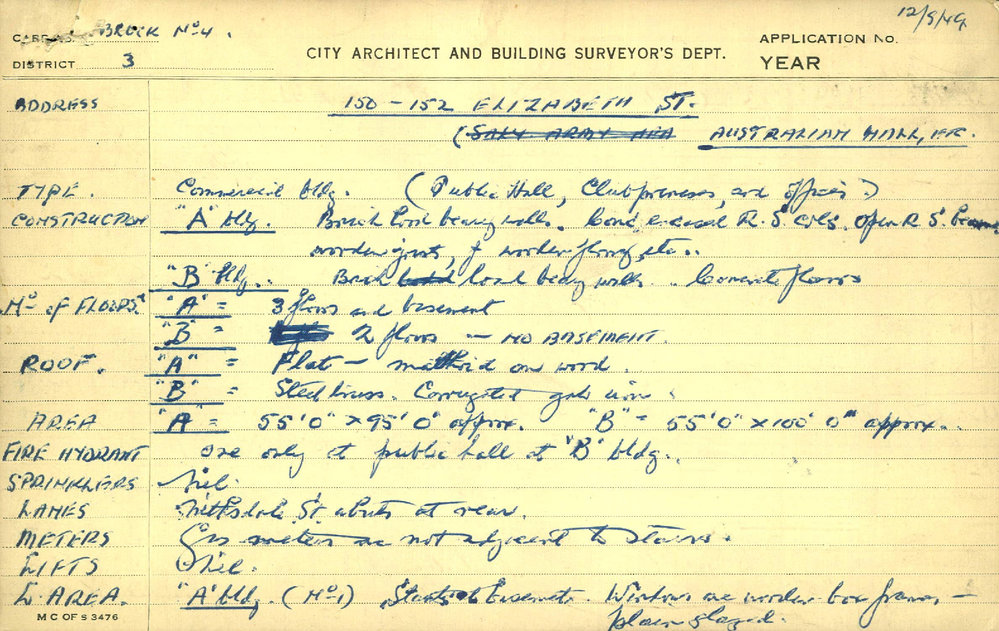 12/9/49
BLOCK No 4.
DISTRICT 3
CITY ARCHITECT AND BUILDING SURVEYOR'S DEPT.
APPLICATION No.
YEAR
ADDRESS 150-152 ELIZABETH ST.
(SALV ARMY AUSTRALIAN HALL, ETC.
TYPE. Commercial bldg. (Public Hall, Club premises, and offices)
CONSTRUCTION "A" bldg. Brick load bearing walls. Conc encased R.S cols. open R S beams
wooden joists, wooden floors, etc..
"B" bldg.. Brick load bearing walls.. Concrete floors
No of FLOORS. "A" = 3 floors and basement
"B" = 2 floors — NO BASEMENT.
ROOF. "A" = Flat — malthoid on wood.
"B" = Steel truss. Corrugated galv iron.
AREA "A" = 55'0" x 95'0" approx. "B" = 55'0" x 100'0" approx..
FIRE HYDRANT One only at public hall at "B" bldg..
SPRINKLERS Nil.
LANES Nithsdale St. abuts at rear.
METERS Gas meters are not adjacent to stairs.
LIFTS Nil.
L. AREA. "A" bldg. (No1) Starts at basement. Windows are wooden box frames —
plain glazed.
M C OF S 3476